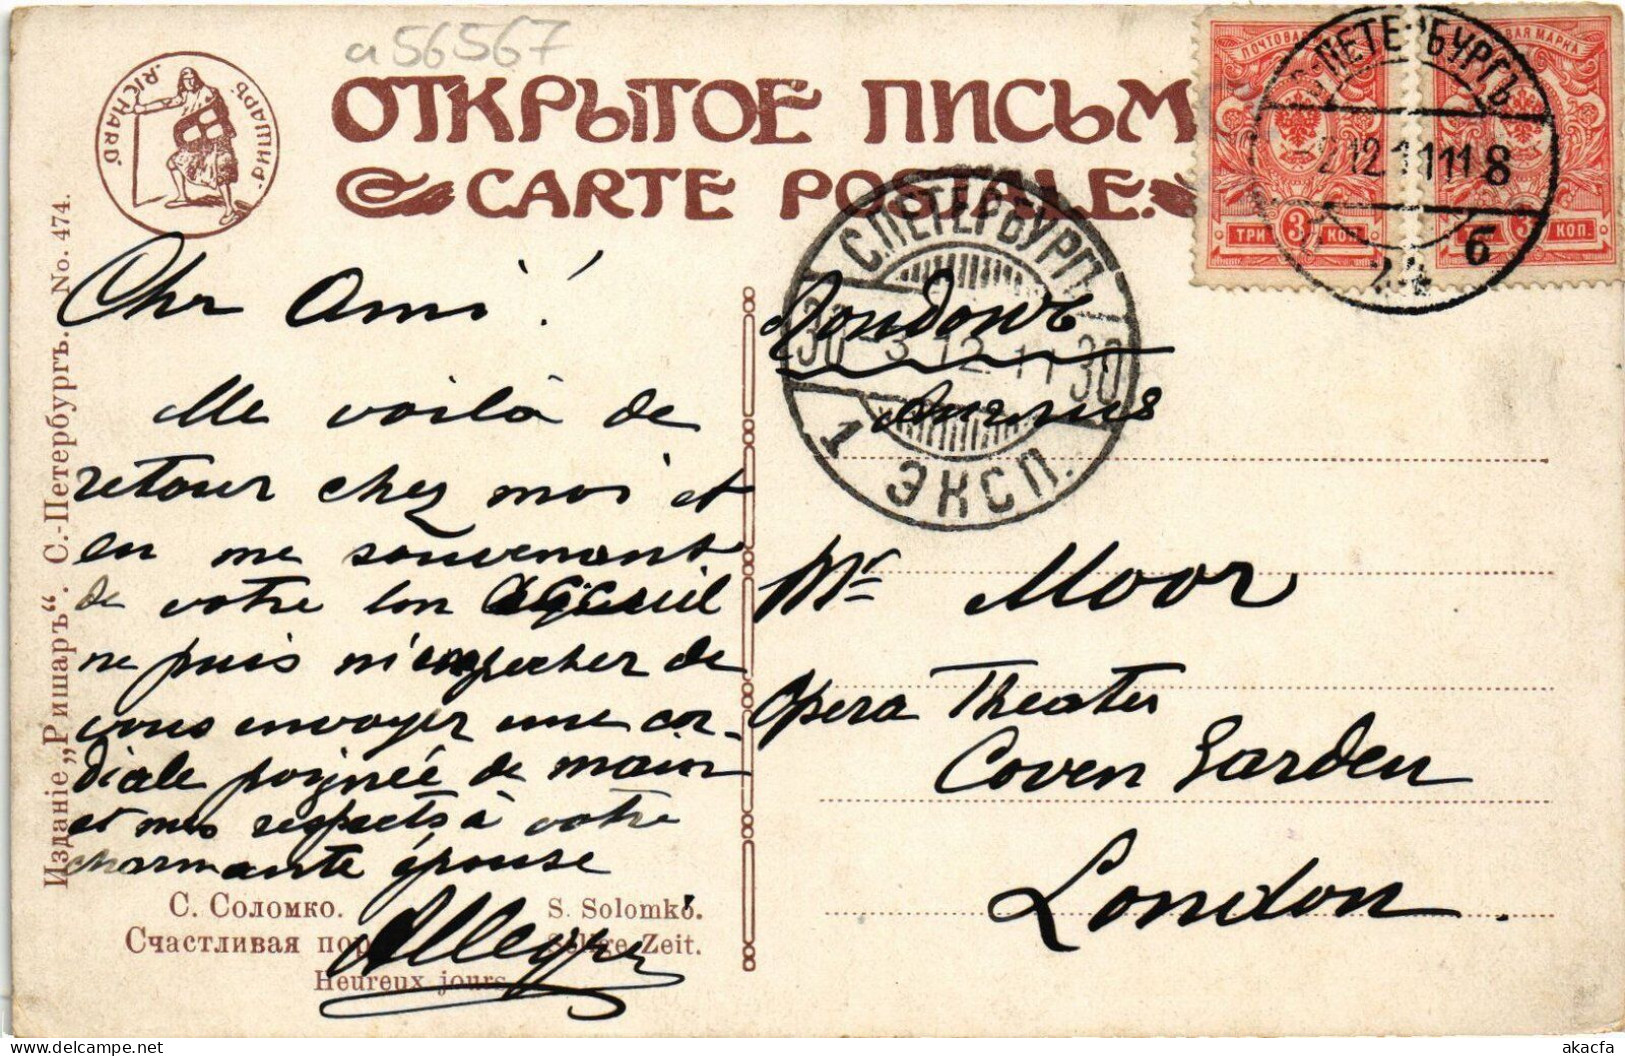 a56567
ОТКРЫТОЕ ПИСЬМ
CARTE POSTALE.
RICHARD
РИШАРЪ
ПОЧТОВАЯ МАРКА
ТРИ 3 КОП.
3 КОП.
С-ПЕТЕРБУРГЪ
2 12 11 11 8
б
С.ПЕТЕРБУРГЪ
30 -3.12.11 30
1 ЭКСП.
Изданіе „Ришаръ“. С.-Петербургъ. No. 474.
Chr Ami!
Me voilà de
retour chez moi et
en me souvenant
de votre bon accueil
ne puis m'empecher de
vous envoyer une cor-
diale poignée de main
et mes respects à votre
charmante épouse
Allegri
С. Соломко.
S. Solomko.
Счастливая пора
Selige Zeit.
Heureux jours.
Лондонъ
Англия
Mr Moor
Opera Theater
Coven Garden
London.
akacfa